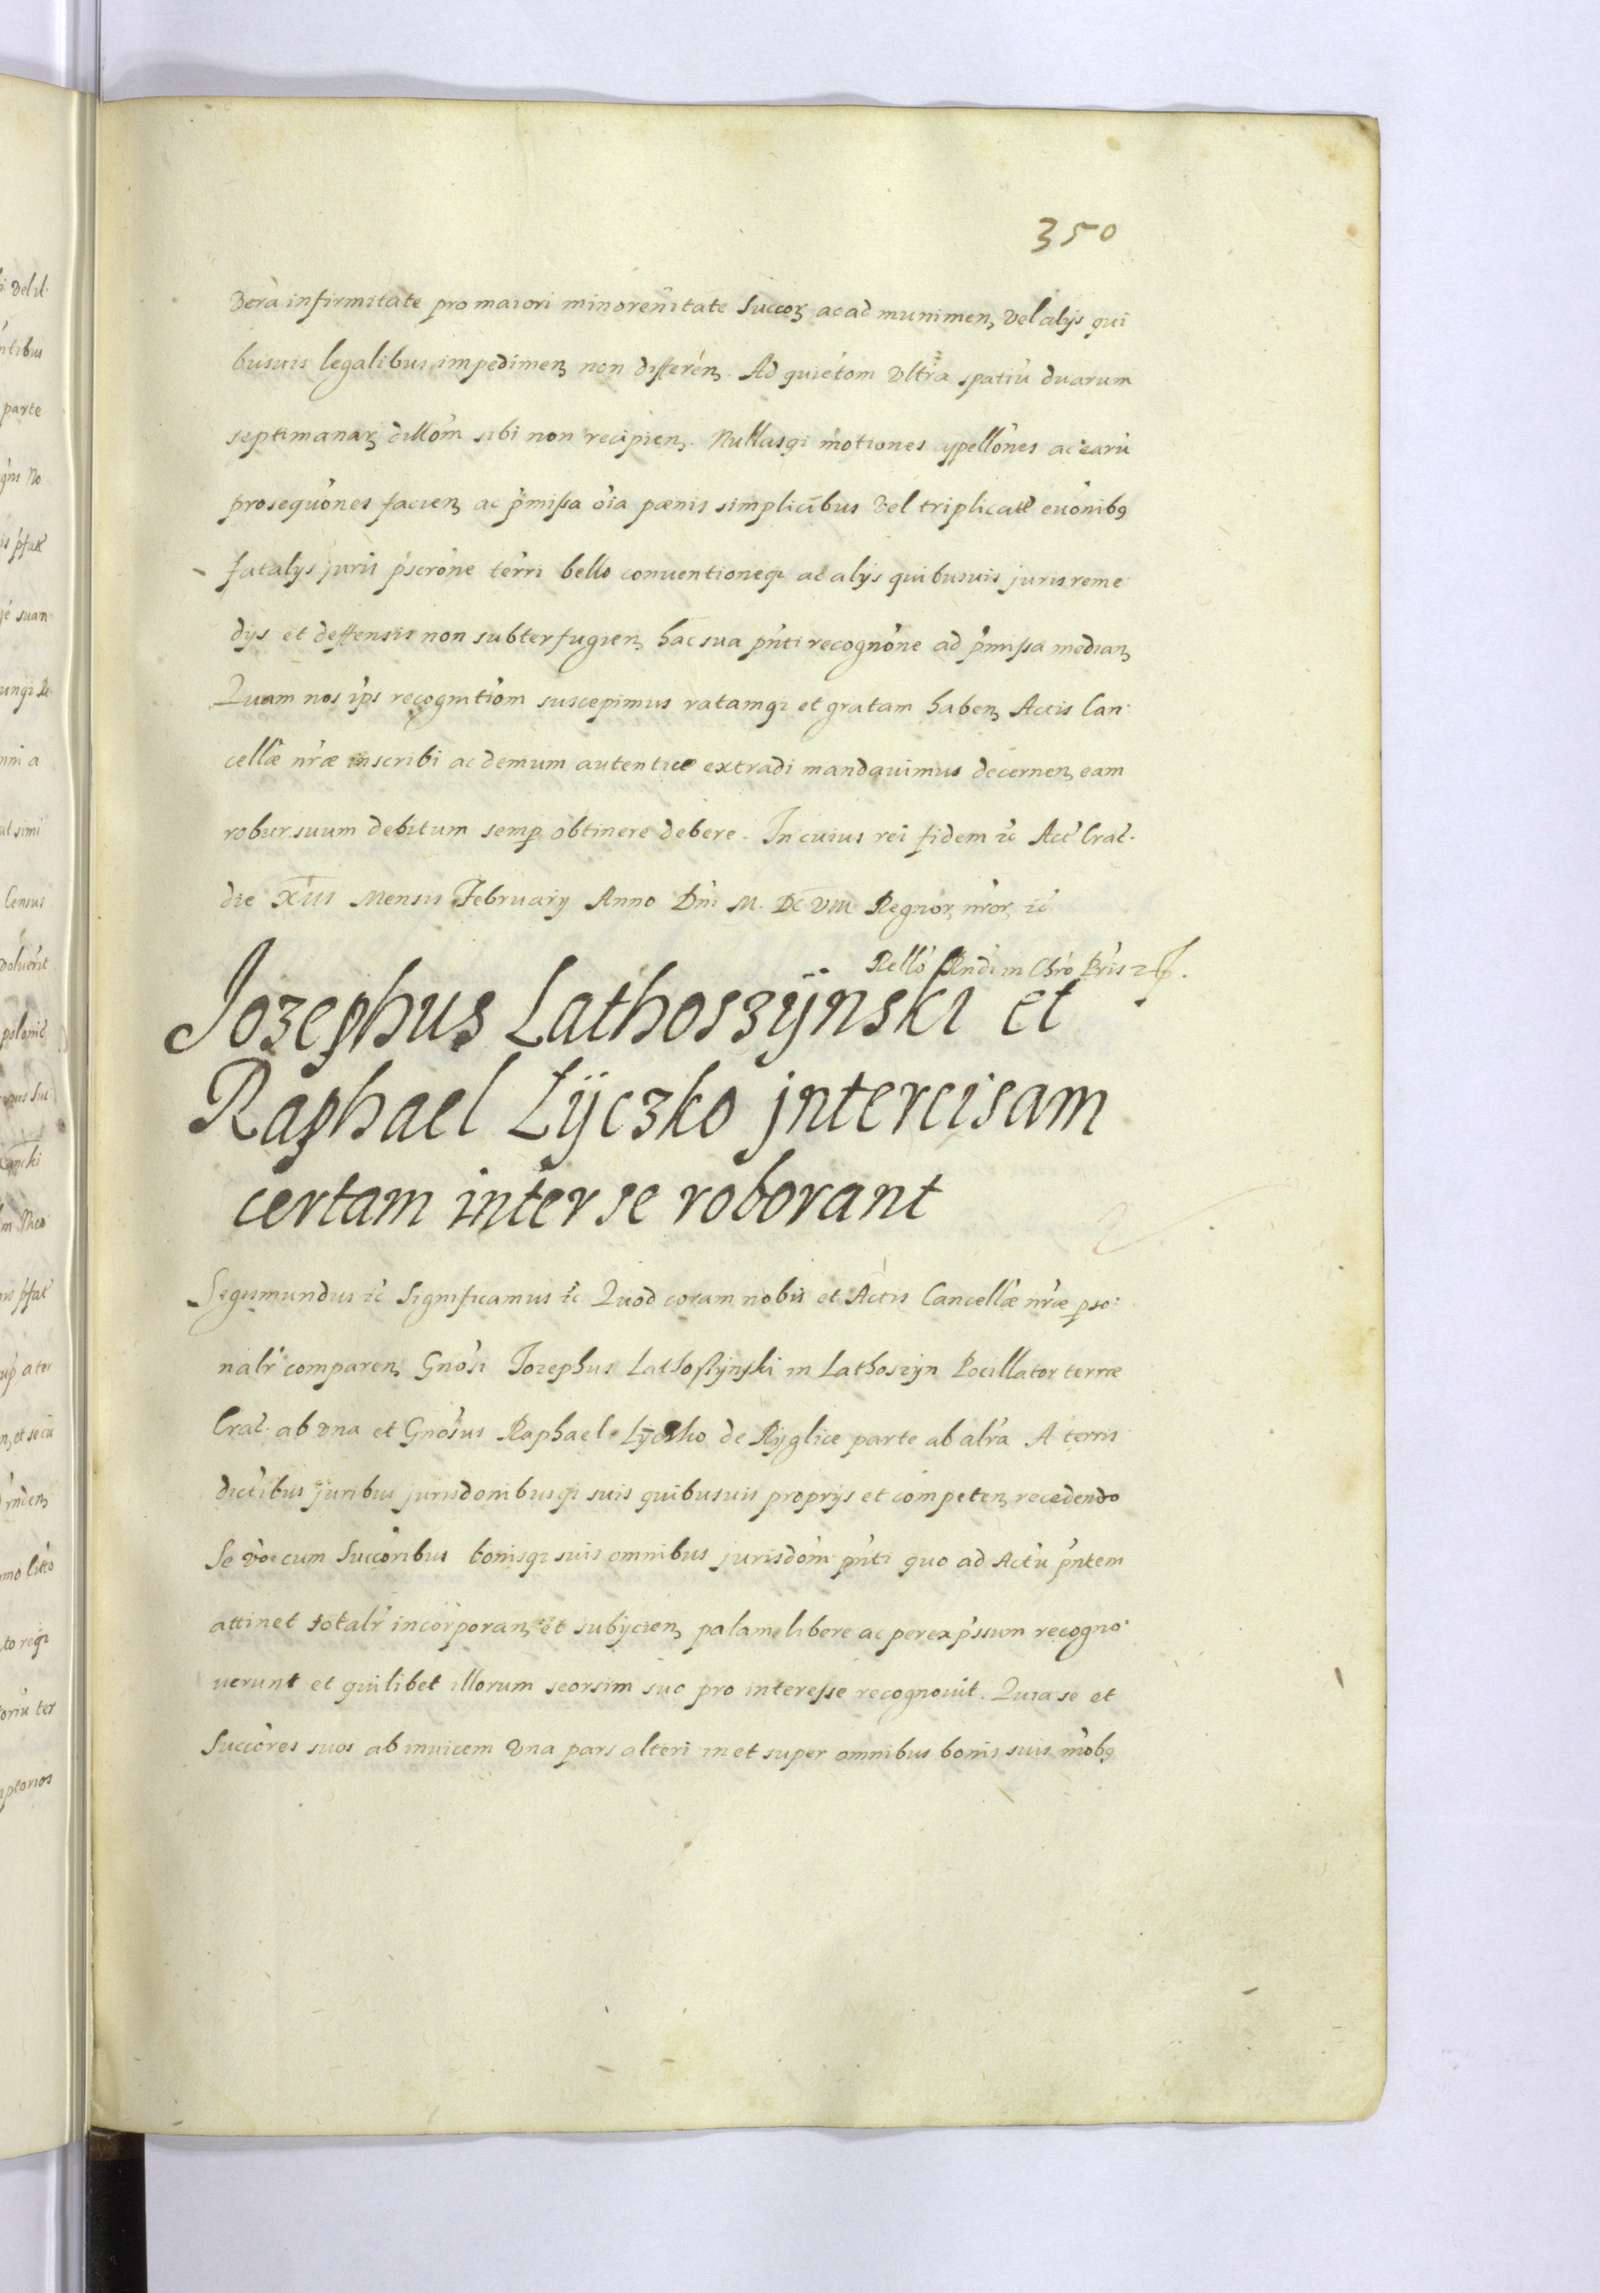 350
Vera infirmitate pro maiori minorenitate Succoꝝ ac ad munimenꝫ vel alijs qui
busuis legalibus impedimenꝫ non differenꝫ. Ad quietom vltra spatiũ duarum
septimanaꝝ dillom sibi non recipienꝫ. Nullasqꝫ motiones appellones ac earũ
prosequones facienꝫ ac p̃missa oĩa pœnis simplicibus vel triplicatꝫ euonibꝯ
fatalys juris p̃scrone terri bello conuentioneqꝫ ac alys quibusuis juris reme
dys et deffensis non subterfugienꝫ hac sua pñti recognone ad p̃missa medianꝫ
Quam nos ips recognitiom suscepimus ratamqꝫ et gratam habenꝫ Actis Can
cellæ nr̃æ inscribi ac demum autentice extradi mandauimus decernenꝫ eam
robur suum debitum semꝑ obtinere debere. In cuius rei fidem ꝛc Act Crac.
die XIII Mensis February Anno Dni M. DC VIII Regnoꝝ nr̃oꝝ ꝛc
Rello Rndi in Chro Pris ꝛ
Jozephus Lathoszÿnski et
Raphael Lÿczko jntercisam
certam inter se roborant
Segismundus ꝛc Significamus ꝛc Quod coram nobis et Actis Cancellæ nr̃æ ꝑso
nalr comparenꝫ Gnosi Jozephus Lathosszynski in Lathoszyn Pocillator terræ
Crac. ab vna et Gnosus Raphael Lÿczko de Ryglice parte ab alra A terris
dictibus juribus jurisdonibusqꝫ suis quibusuis proprijs et competenꝫ recedendo
Se cum Succoribus bonisqꝫ suis omnibus jurisdom pñti quo ad Actũ pñtem
attinet totalr incorporanꝫ et subycienꝫ palam libere ac per expssum recogno
uerunt et quilibet illorum seorsim suo pro interesse recognouit. Quia se et
Succores suos ab inuicem vna pars alteri in et super omnibus bonis suis mobꝯ